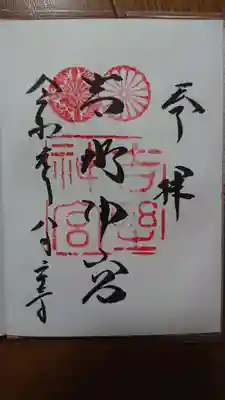 奉拝
吉野神宮
吉野神宮
令和元年八月